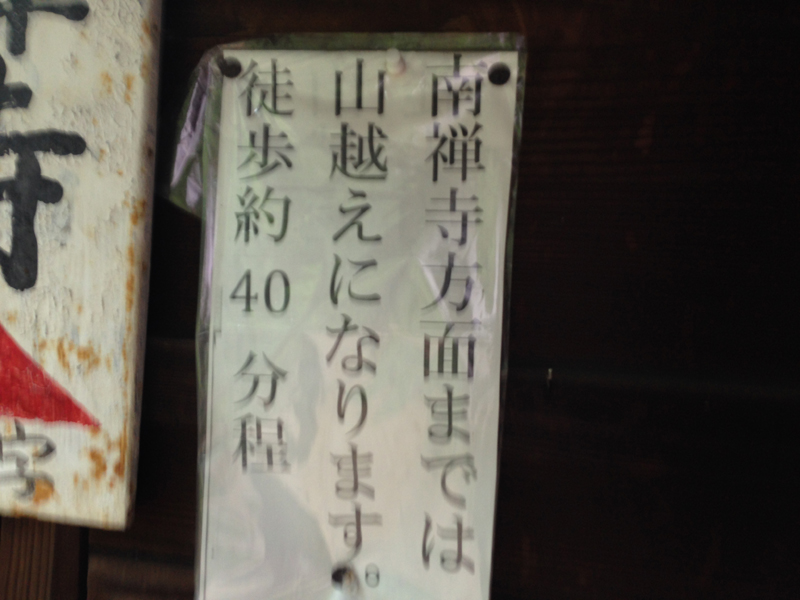 南禅寺方面までは
山越えになります。
徒歩約40分程
寺